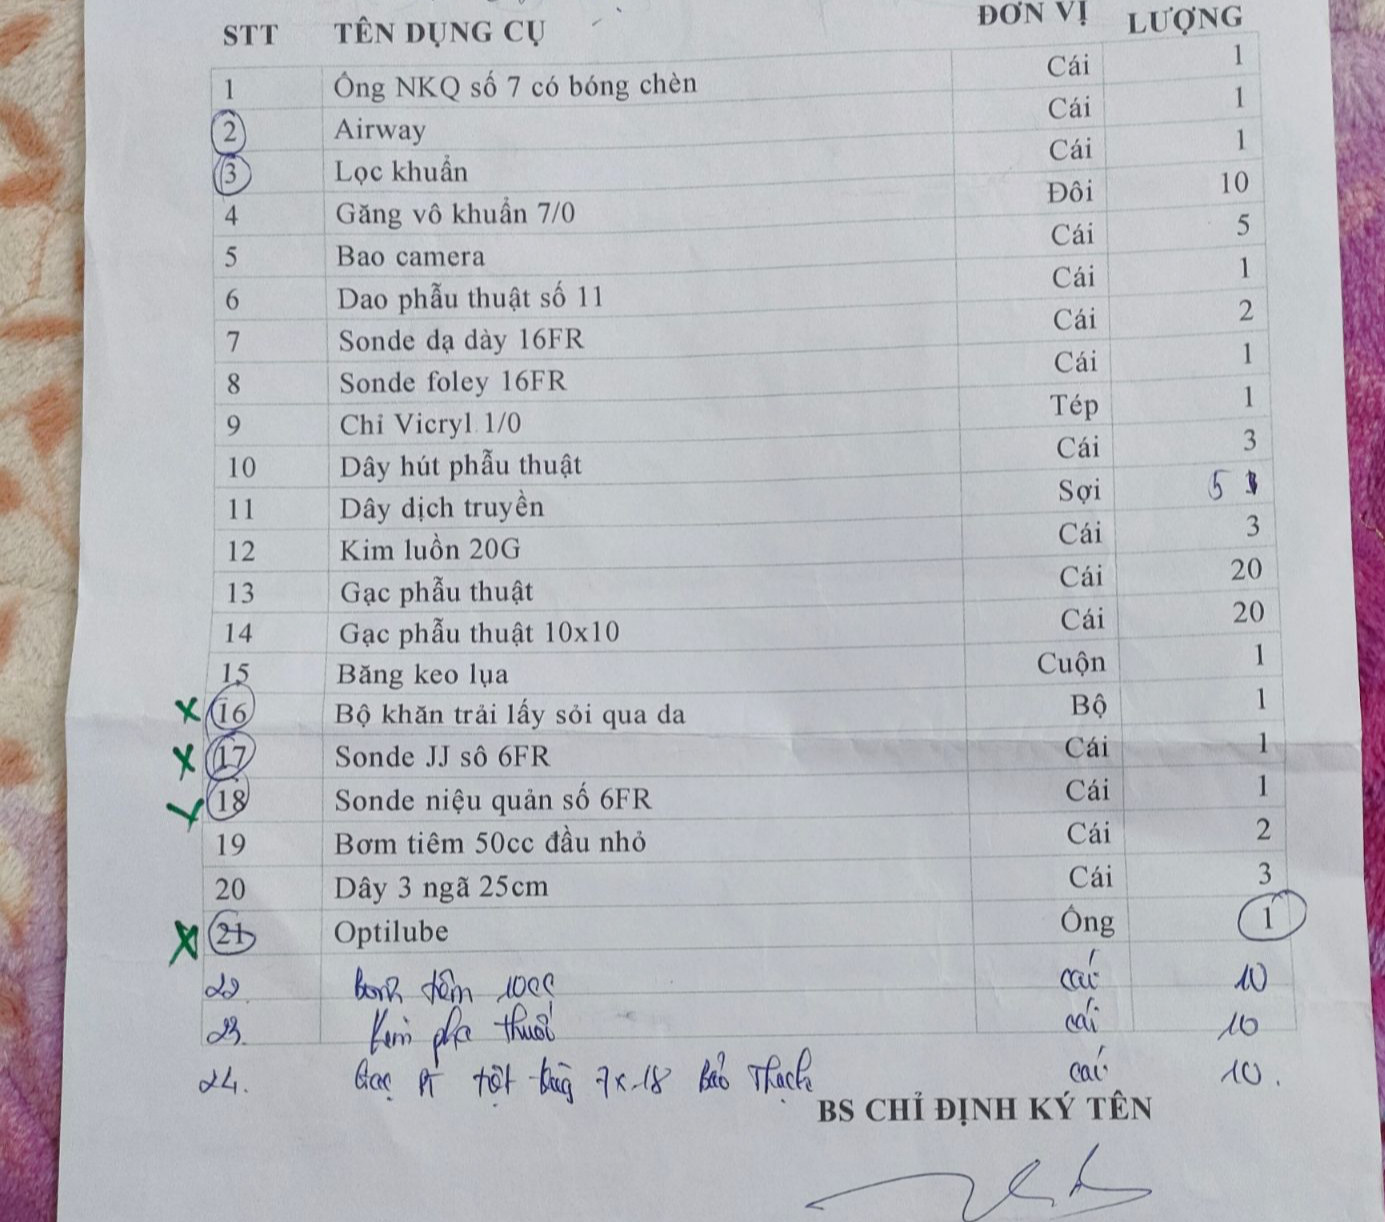 STT TÊN DỤNG CỤ ĐƠN VỊ LƯỢNG
1 Ông NKQ số 7 có bóng chèn Cái 1
2 Airway Cái 1
3 Lọc khuẩn Cái 1
4 Găng vô khuẩn 7/0 Đôi 10
5 Bao camera Cái 5
6 Dao phẫu thuật số 11 Cái 1
7 Sonde dạ dày 16FR Cái 2
8 Sonde foley 16FR Cái 1
9 Chỉ Vicryl 1/0 Tép 1
10 Dây hút phẫu thuật Cái 3
11 Dây dịch truyền Sợi 5
12 Kim luồn 20G Cái 3
13 Gạc phẫu thuật Cái 20
14 Gạc phẫu thuật 10x10 Cái 20
15 Băng keo lụa Cuộn 1
16 Bộ khăn trải lấy sỏi qua da Bộ 1
17 Sonde JJ sô 6FR Cái 1
18 Sonde niệu quản số 6FR Cái 1
19 Bơm tiêm 50cc đầu nhỏ Cái 2
20 Dây 3 ngã 25cm Cái 3
21 Optilube Ông 1
22 bơm tiêm 10cc cái 10
23. kim pha thuốc cái 10
24. Gạc PT tột 7x18 Bảo Thạch cái 10.
BS CHỈ ĐỊNH KÝ TÊN